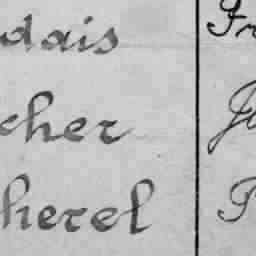 dais Fr
cher Ja
herel P